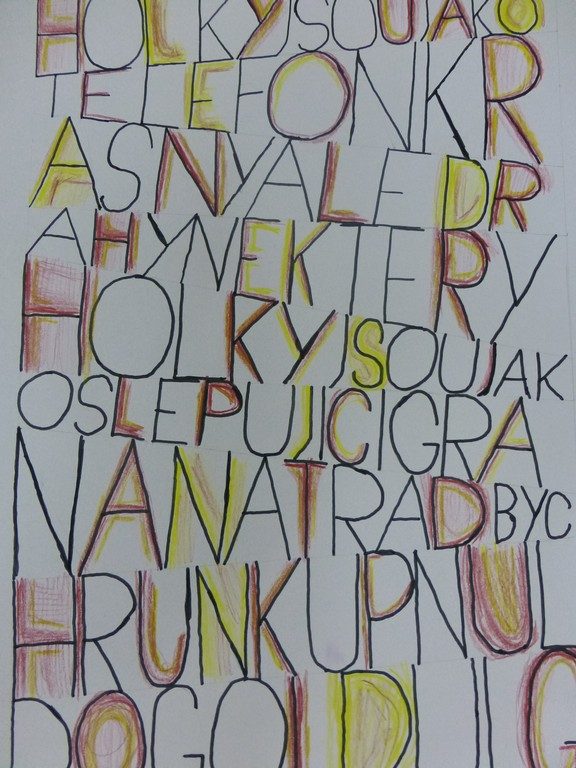 HOLKYJSOUJAKO
TELEFONKR
ASNYALEDR
AHYNEKTERY
HOLKYJSOUJAK
OSLEPUJICIGRA
NANATRADBYC
HRUNKUPNUL